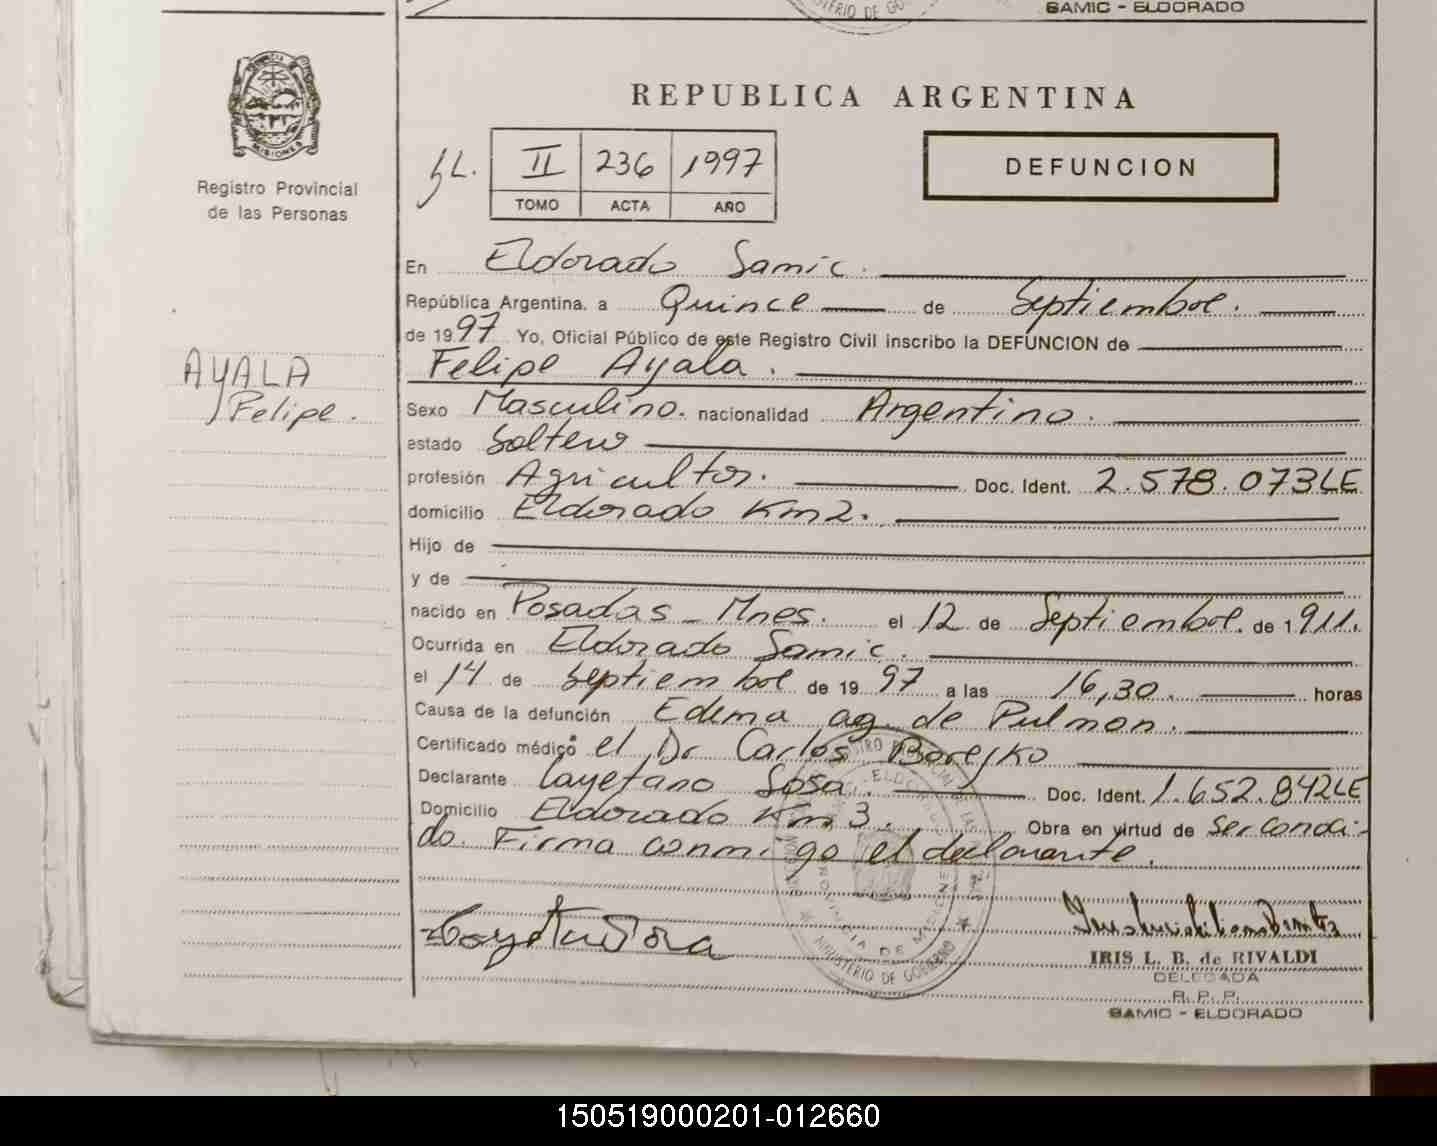 SAMIC - ELDORADO
REPUBLICA ARGENTINA
MISIONES
Registro Provincial
de las Personas
II 236 1997
TOMO ACTA AÑO
DEFUNCION
En Eldorado Samic.
República Argentina. a Quince de Septiembre.
de 1997 Yo, Oficial Público de este Registro Civil inscribo la DEFUNCION de
Felipe Ayala.
AYALA
Felipe.
Sexo Masculino. nacionalidad Argentino.
estado Soltero
profesión Agricultor. Doc. Ident. 2.578.073LE
domicilio Eldorado Km2.
Hijo de
y de
nacido en Posadas - Mnes. el 12 de Septiembre. de 1911.
Ocurrida en Eldorado Samic.
el 14 de Septiembre de 1997 a las 16,30. horas
Causa de la defunción Edema ag. de Pulmon.
Certificado médico el Dr Carlos Borejko
Declarante Cayetano Sosa. Doc. Ident. 1.652.842LE
Domicilio Eldorado Km 3. Obra en virtud de ser conoci-
do. Firma conmigo el declarante.
MINISTERIO DE GOBIERNO
IRIS L. B. de RIVALDI
DELEGADA
R. P. P.
SAMIC - ELDORADO
150519000201-012660